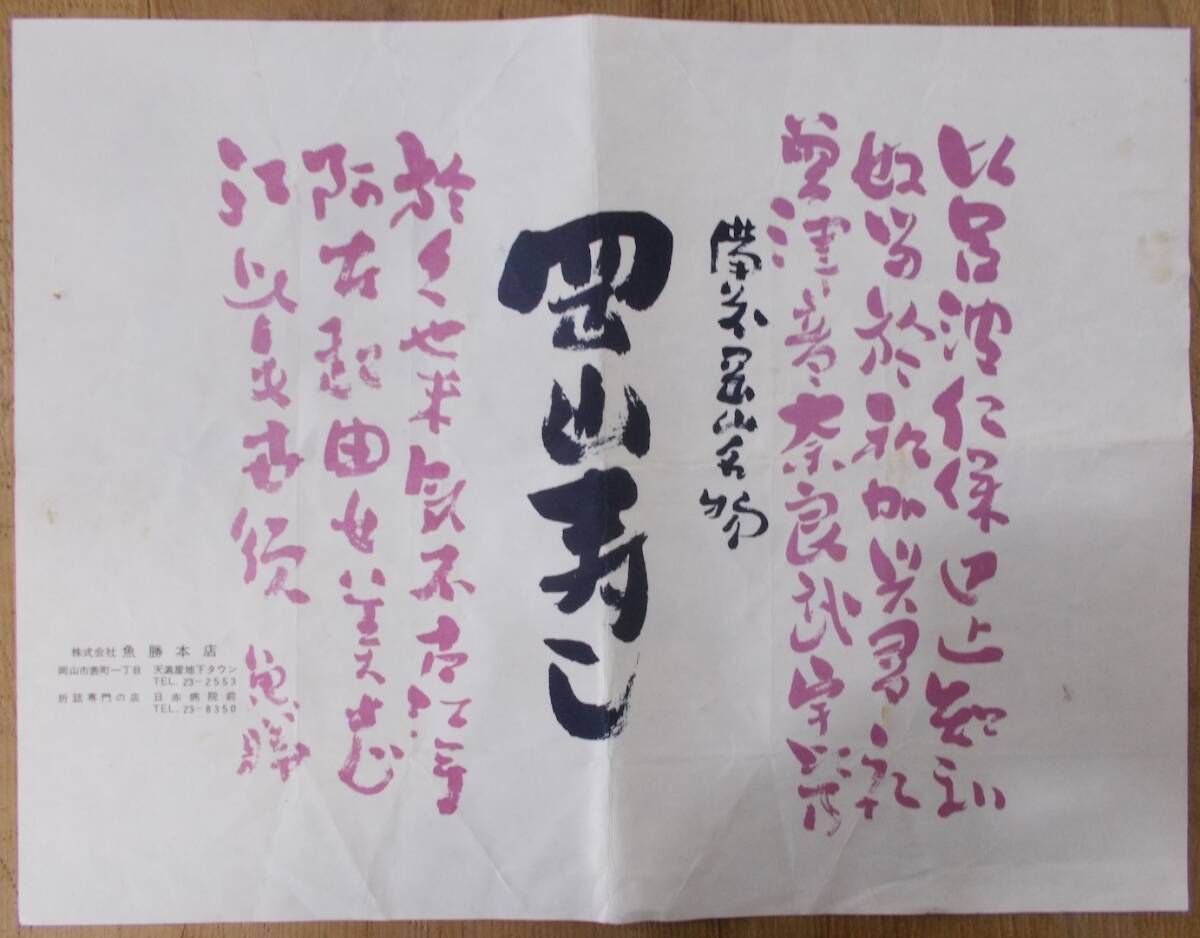 以呂波仁保止知利
奴留於和加與多礼
曽津音奈良武宇為乃
備前岡山名物
岡山寿し
於久也末不古江天
阿左起由女美之
江比毛世須 魚勝
株式会社 魚勝本店
岡山市表町一丁目 天満屋地下タウン
TEL. 23-2553
折詰専門の店 日赤病院前
TEL. 23-8350